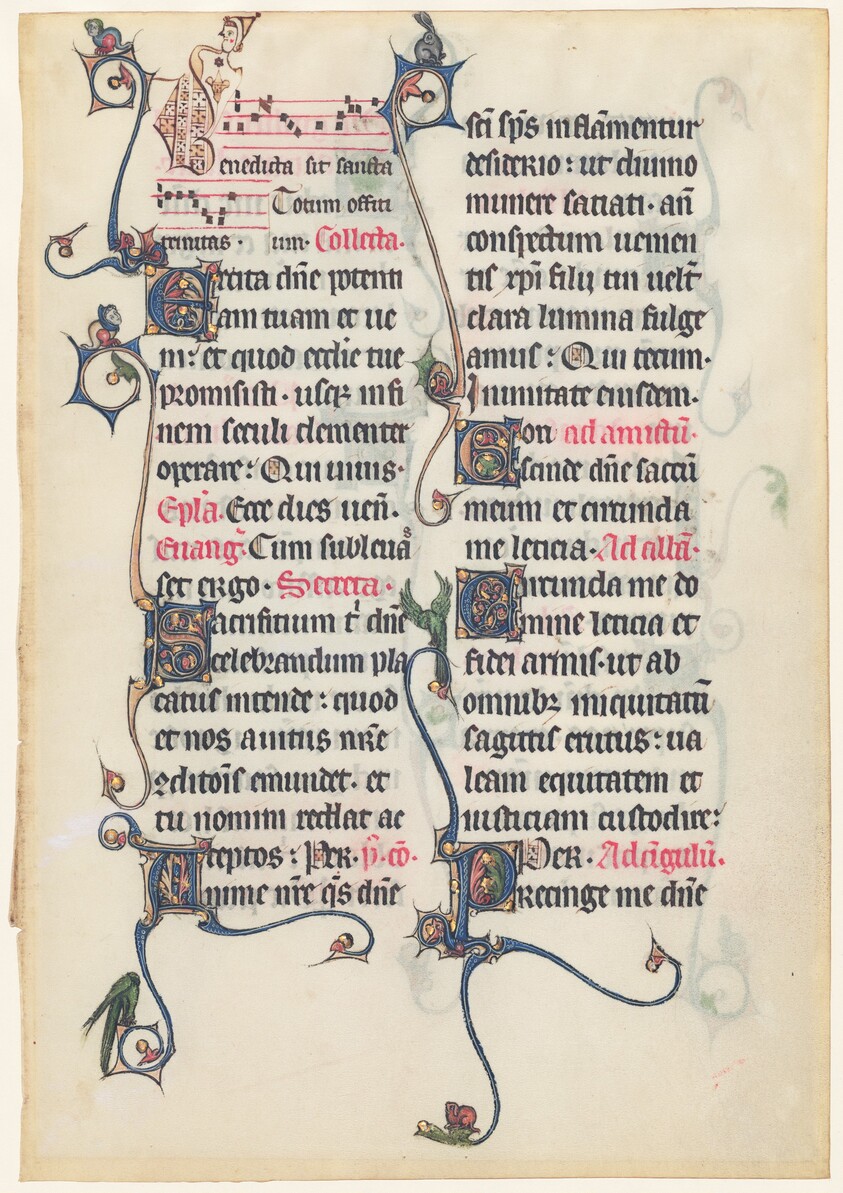 Benedicta sit sancta
Totum offici
trinitas · um· Collecta·
Excita dn̄e potenti
am tuam et ue
ni: et quod ecclie tue
promisisti · usq; in fi
nem seculi clementer
operare: Qui uiuis·
Epl̄a· Ecce dies ueñ·
Euanḡ· Cum subleuas
set ergo · Secreta ·
Sacrificium t͛ dn̄e
celebrandum pla
catus intende: quod
et nos a uitiis nr̄e
ꝯditōis emundet· et
tu nomini reddat ac
ceptos: Per· p̄·cō·
Anime nr̄e q̄s dn̄e
sc̄i sp̄s inflāmentur
desiderio: ut diuino
munere satiati· añ
conspectum uenien
tis xp̄i filij tui uelt̄
clara lumina fulge
amus: Qui tecum·
In unitate eiusdem·
ad amictū·
Cscinde dn̄e saccū
meum et circunda
me leticia· Ad albā·
Circunda me do
mine leticia et
fidei armis· ut ab
omnibꝫ iniquitatū
sagittis erutus: ua
leam equitatem et
iusticiam custodire:
Per· Ad cīgulū·
Precinge me dn̄e